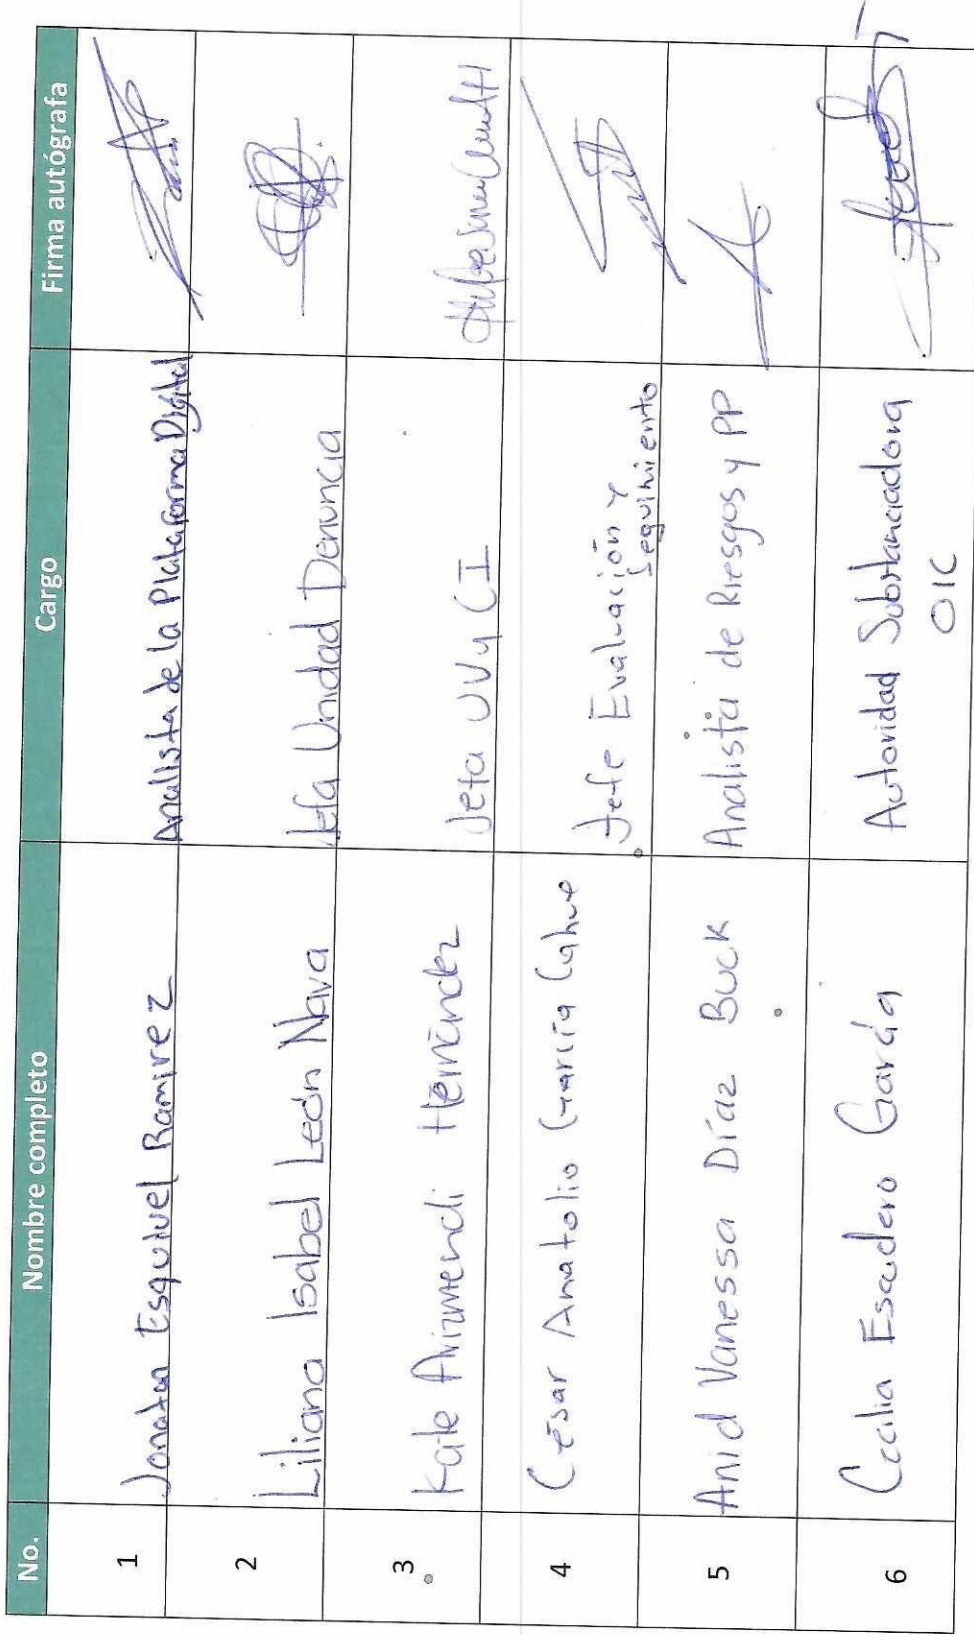 No. Nombre completo Cargo Firma autógrafa
1 Jonatan Esquivel Ramirez Analista de la Plataforma Digital
2 Liliana Isabel León Nava Jefa Unidad Denuncia
3 Kate Arizmendi Hernández Jefa UV y CI
4 César Anatolio García Cahue Jefe Evaluación y
Seguimiento
5 Anid Vanessa Díaz Buck Analista de Riesgos y PP
6 Cecilia Escudero García Autoridad Substanciadora
OIC